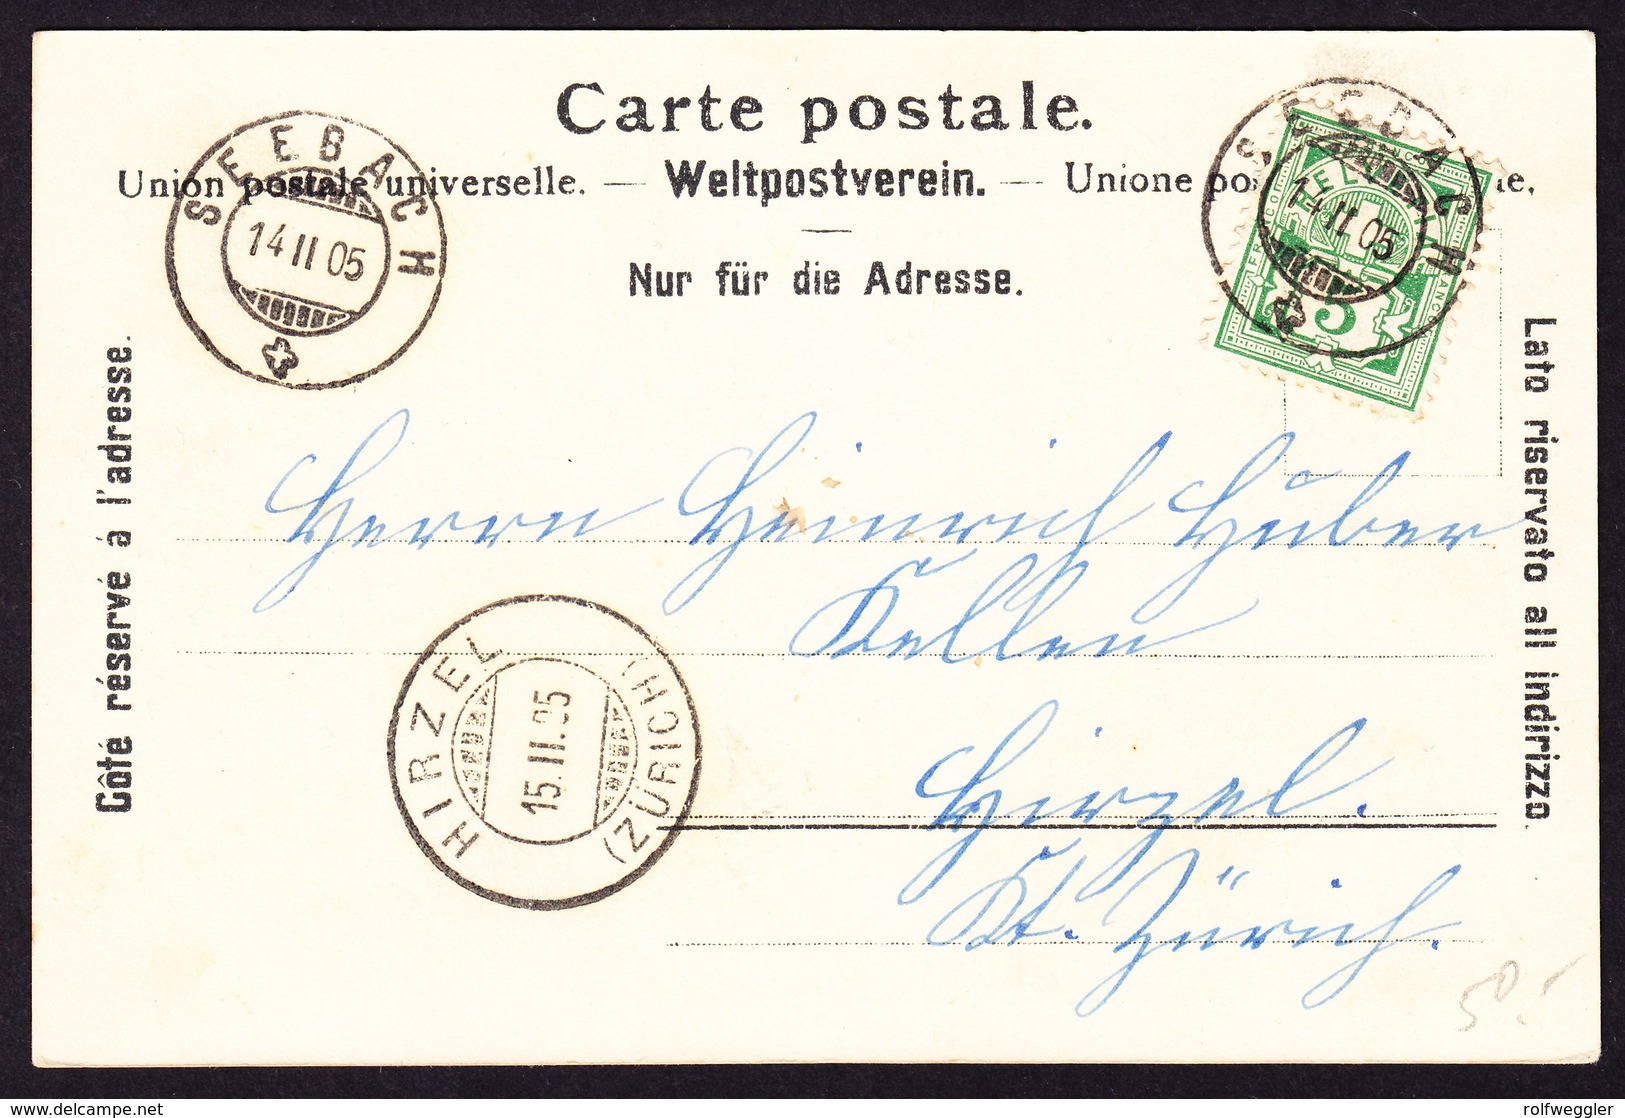 Carte postale.
Union postale universelle. — Weltpostverein. — Unione po
Nur für die Adresse.
SEEBACH
14 II 05
SEEBACH
14 II 05
5
Côté réservé à l'adresse.
Lato riservato all indirizzo.
Herrn Heinrich Huber
Hirzel.
Kt. Zürich.
HIRZEL
(ZÜRICH)
15.II.05
50.-
delcampe.net
rolfweggler